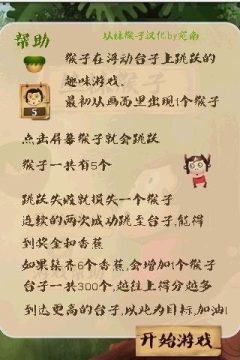 帮助
丛林猴子汉化by宛南
猴子在浮动台子上跳跃的
趣味游戏.
最初从画面里出现1个猴子
5
点击屏幕猴子就会跳跃
猴子一共有5个
跳跃失败就损失一个猴子
连续的两次成功跳至台子,能得
到奖金和香蕉
如果集齐6个香蕉,会增加1个猴子
台子一共300个,越往上得分越多
到达更高的台子,以此为目标,加油!
开始游戏